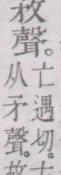 敄聲。
亡遇切。
从矛聲。